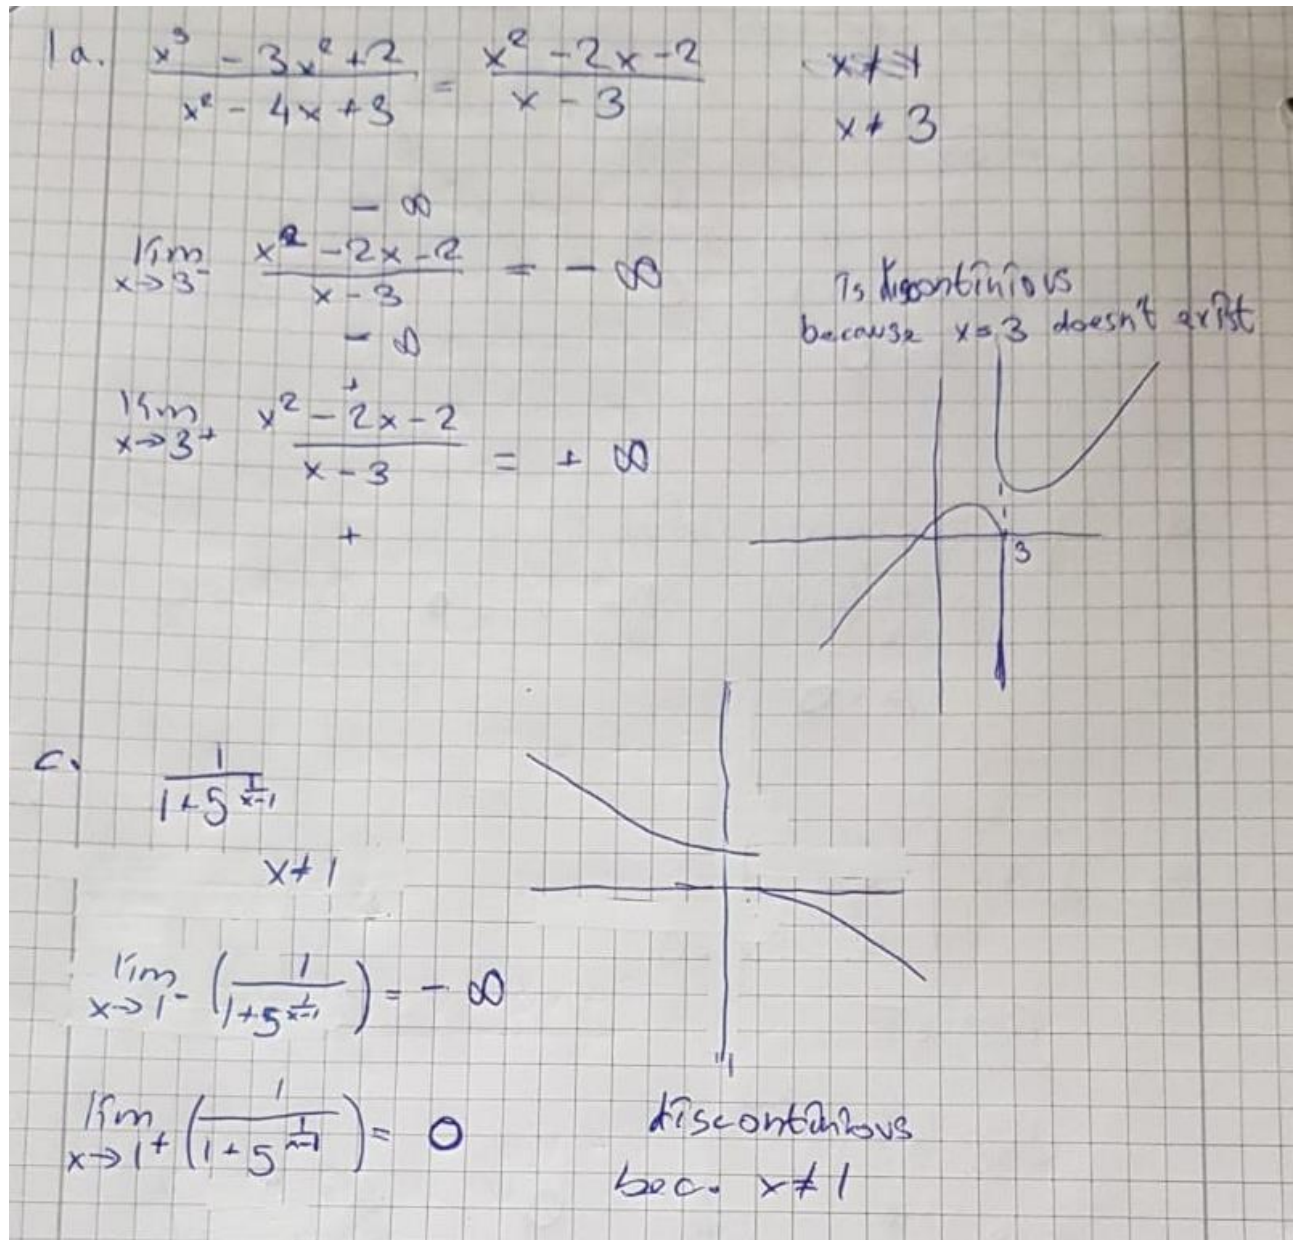 1a. (x³ - 3x² + 2)/(x² - 4x + 3) = (x² - 2x - 2)/(x - 3)
x ≠ 1
x ≠ 3
- ∞
lim x→3⁻ (x² - 2x - 2)/(x - 3) = - ∞
is discontinious
because x = 3 doesn't exist
+
lim x→3⁺ (x² - 2x - 2)/(x - 3) = + ∞
+
3
c. 1/(1 + 5^(1/(x-1)))
x ≠ 1
lim x→1⁻ (1/(1 + 5^(1/(x-1)))) = - ∞
1
lim x→1⁺ (1/(1 + 5^(1/(x-1)))) = 0
discontinious
bec. x ≠ 1